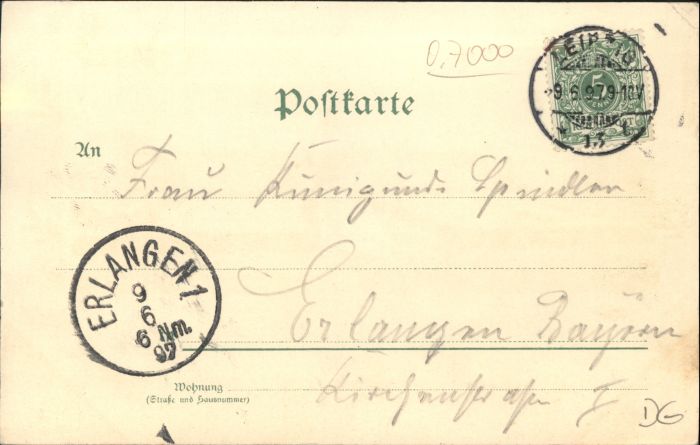 0,7000
LEIPZIG
9.6.97 9-10V
13
5
Postkarte
An
Frau Kunigunde Spindler
ERLANGEN 1
9
6
6 Nm.
97
Erlangen Bayern
Wohnung
(Straße und Hausnummer)
Kirchenstrasse 7
DG